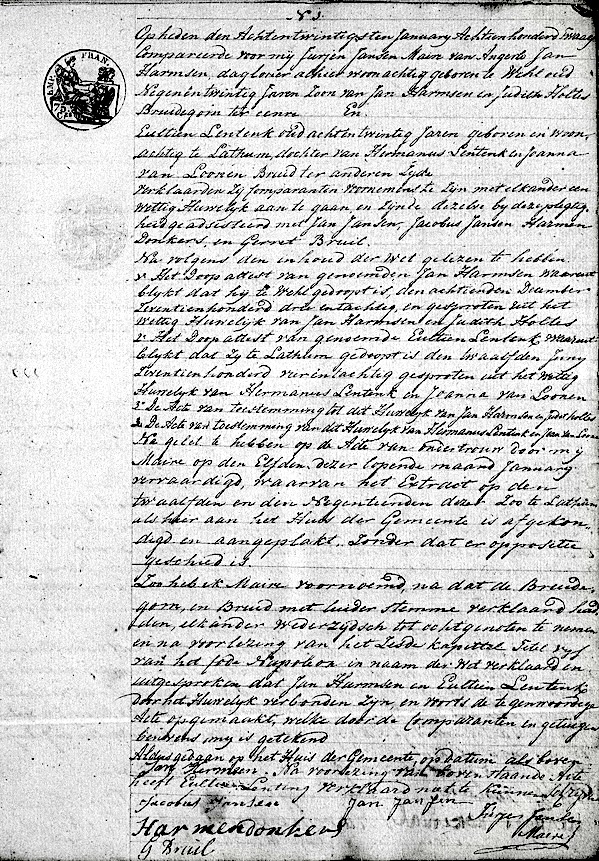 N 3.
EMP. FRAN.
75
Op heden den Achtentwintigsten January Achtienhonderd twaalf
Compareerde voor my Jurjen Jansen Maire van Angerlo Jan
Harmsen, dagloner alhier woonachtig geboren te Wehl oud
Negenentwintig Jaren Zoon van Jan Harmsen en Judith Holtes
Bruidegom ter eenre En
Eultien Lentenk oud achtentwintig Jaren geboren en woon
achtig te Lathum, dochter van Hermanus Lentenk en Joanna
van Loonen Bruid ter anderen Zyde
verklaarden Zy Comparanten voornemens te Zyn met elkander een
wettig Huwelyk aan te gaan, en Zynde dezelve by deze plegtig
heid geadsisteerd met Jan Jansen, Jacobus Jansen Harmen
Donkers, en Gerret Bruil.
Na volgens den inhoud der Wet gelezen te hebben
1o Het Doop attest van genoemden Jan Harmsen waaruit
blykt dat hy te Wehl gedoopt is, den achtienden December
Zeventienhonderd drie en tachtig, en gesproten uit het
wettig Huwelyk van Jan Harmsen en Judith Holtes
2o Het Doop attest van genoemde Eultien Lentenk waaruit
blykt dat Zy te Lathum gedoopt is den twaalfden Juny
Zeventienhonderd vier en tachtig gesproten uit het wettig
Huwelyk van Hermanus Lentenk en Joanna van Loonen
3o De Acte van toestemming tot dit Huwelyk van Jan Harmsen en Judit Holtes
De Acte van toestemming van dit Huwelyk van Hermanus Lentenk en Jan van Loonen
Na gelet te hebben op de Acte van ondertrouw door my
Maire op den Elfden, dezer lopende maand January
vervaardigd, waarvan het Extract op den
twaalfden en den Negentienden dezer Zoo te Lathum
als hier aan het Huis der Gemeente is afgekon
digd en aangeplakt. Zonder dat er oppositie
geschied is
Zoo heb ik Maire voornoemd, na dat de Bruide
gom, en Bruid met luider stemme verklaard had
den, elkander wederzydsch tot echtgenoten te nemen
en na voorlezing van het Zesde kapittel Titel vyf
van het Code Napoleon in naam der Wet verklaard en
uitgesproken dat Jan Harmsen en Eultien Lentenk
door het Huwelyk verbonden Zyn, en word de tegenwoordige
Acte op gemaakt, welke door de Comparanten en getuigen
benevens my is getekend
Aldus gedaan op het Huis der Gemeente, op datum als boven
Jan Hermsen. Na voorlezing van bovenstaande Acte
heeft Eultien Lenting verklaard niet te kunnen schryven
Jacobus Jansen Jan Jansen
Harmen donkers Maire
G Bruil